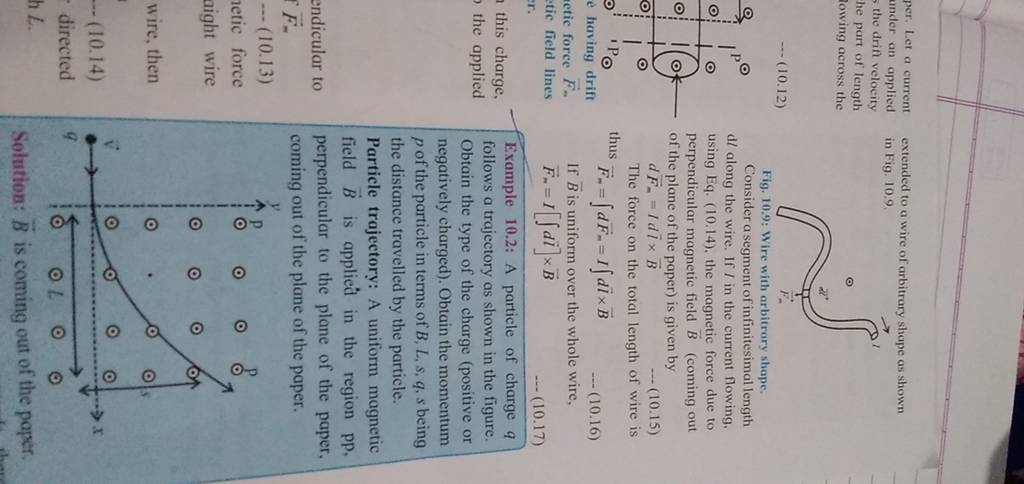 per. Let a current
under an applied
s the drift velocity
he part of length
lowing across the
--- (10.12)
P
P
e having drift
netic force F⃗ₘ
etic field lines
er.
n this charge,
o the applied
endicular to
f F⃗ₘ
--- (10.13)
netic force
aight wire
wire, then
--- (10.14)
r directed
h L.
extended to a wire of arbitrary shape as shown
in Fig. 10.9.
I
dl⃗
F⃗ₘ
Fig. 10.9: Wire with arbitrary shape.
Consider a segment of infinitesimal length
dl along the wire. If I in the current flowing,
using Eq. (10.14), the magnetic force due to
perpendicular magnetic field B⃗ (coming out
of the plane of the paper) is given by
dF⃗ₘ = I dl⃗ × B⃗ --- (10.15)
The force on the total length of wire is
thus F⃗ₘ = ∫dF⃗ₘ = I∫dl⃗ × B⃗ --- (10.16)
If B⃗ is uniform over the whole wire,
F⃗ₘ = I[∫dl⃗] × B⃗ --- (10.17)
Example 10.2: A particle of charge q
follows a trajectory as shown in the figure.
Obtain the type of the charge (positive or
negatively charged). Obtain the momentum
p of the particle in terms of B, L, s, q, s being
the distance travelled by the particle.
Particle trajectory: A uniform magnetic
field B⃗ is applied in the region pp,
perpendicular to the plane of the paper,
coming out of the plane of the paper.
y
P P
s
v⃗
x
q
L
Solution: B⃗ is coming out of the paper.